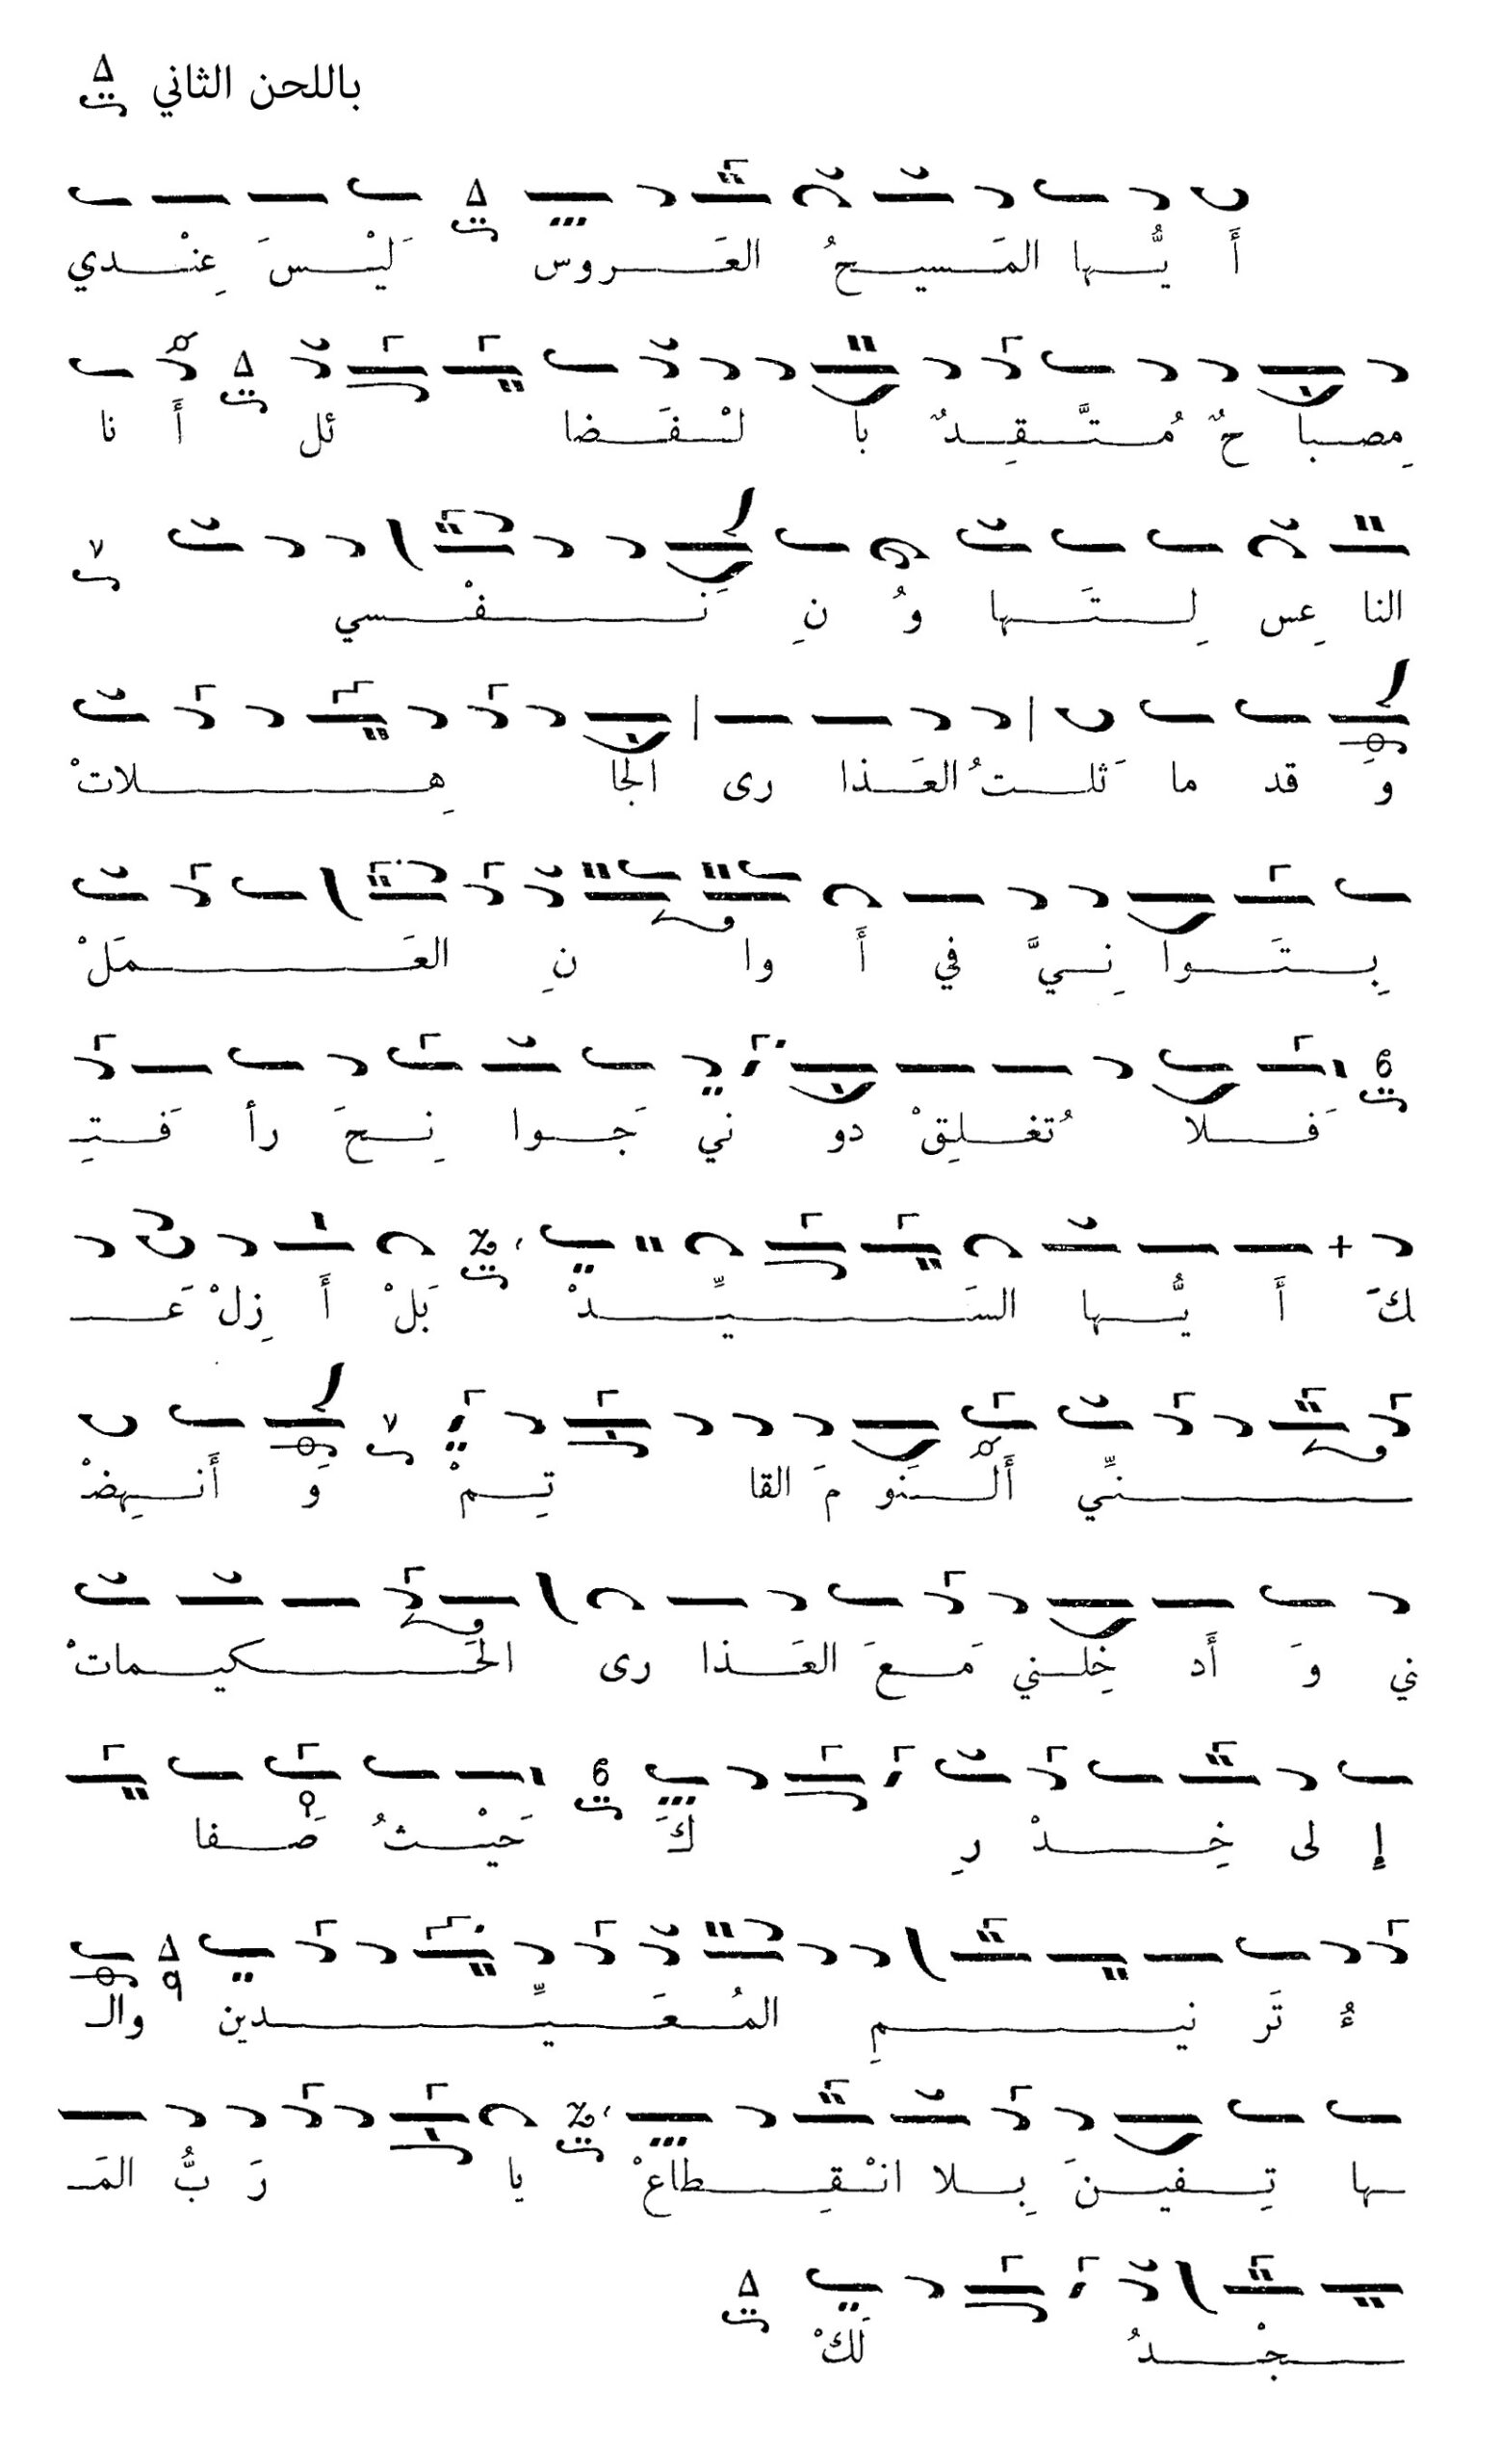 باللحن الثاني
أَ يُّـها المَـسيـحُ العَـروس لَيْـسَ عِنْـدي
مِصـبا حٌ مُـتَّـقِـدٌ با لْـفَـضا ئل أَ نا
النا عِس لِـتَـها وُ نِ نَـفْـسي
وَ قد ما ثَلـتُ العَـذا رى الجا هِـلاتْ
بِـتَـوا نِـيَّ في أَ وا نِ العَـمَلْ
فَـلا تُغـلِقْ دو ني جَـوا نِـحَ رأ فَـتِـ
ـكَ أَ يُّـها السَـيِّـدْ بَلْ أَ زِلْ عَـ
ـنّـِي أَلْـنَو مَ القا تِـمْ وَ أَنـهِضْـ
ني وَ أَد خِلـني مَـعَ العَـذا رى الحَـكيـماتْ
إِ لى خِـدْ رِ كَ حَيْـثُ صَـفا
ءُ تَر نيـمِ المُـعَـيِّـدين والـ
ـها تِـفيـنَ بِـلا انْـقِـطاعْ يا رَ بُّ المَـ
ـجْـدُ لَكْ